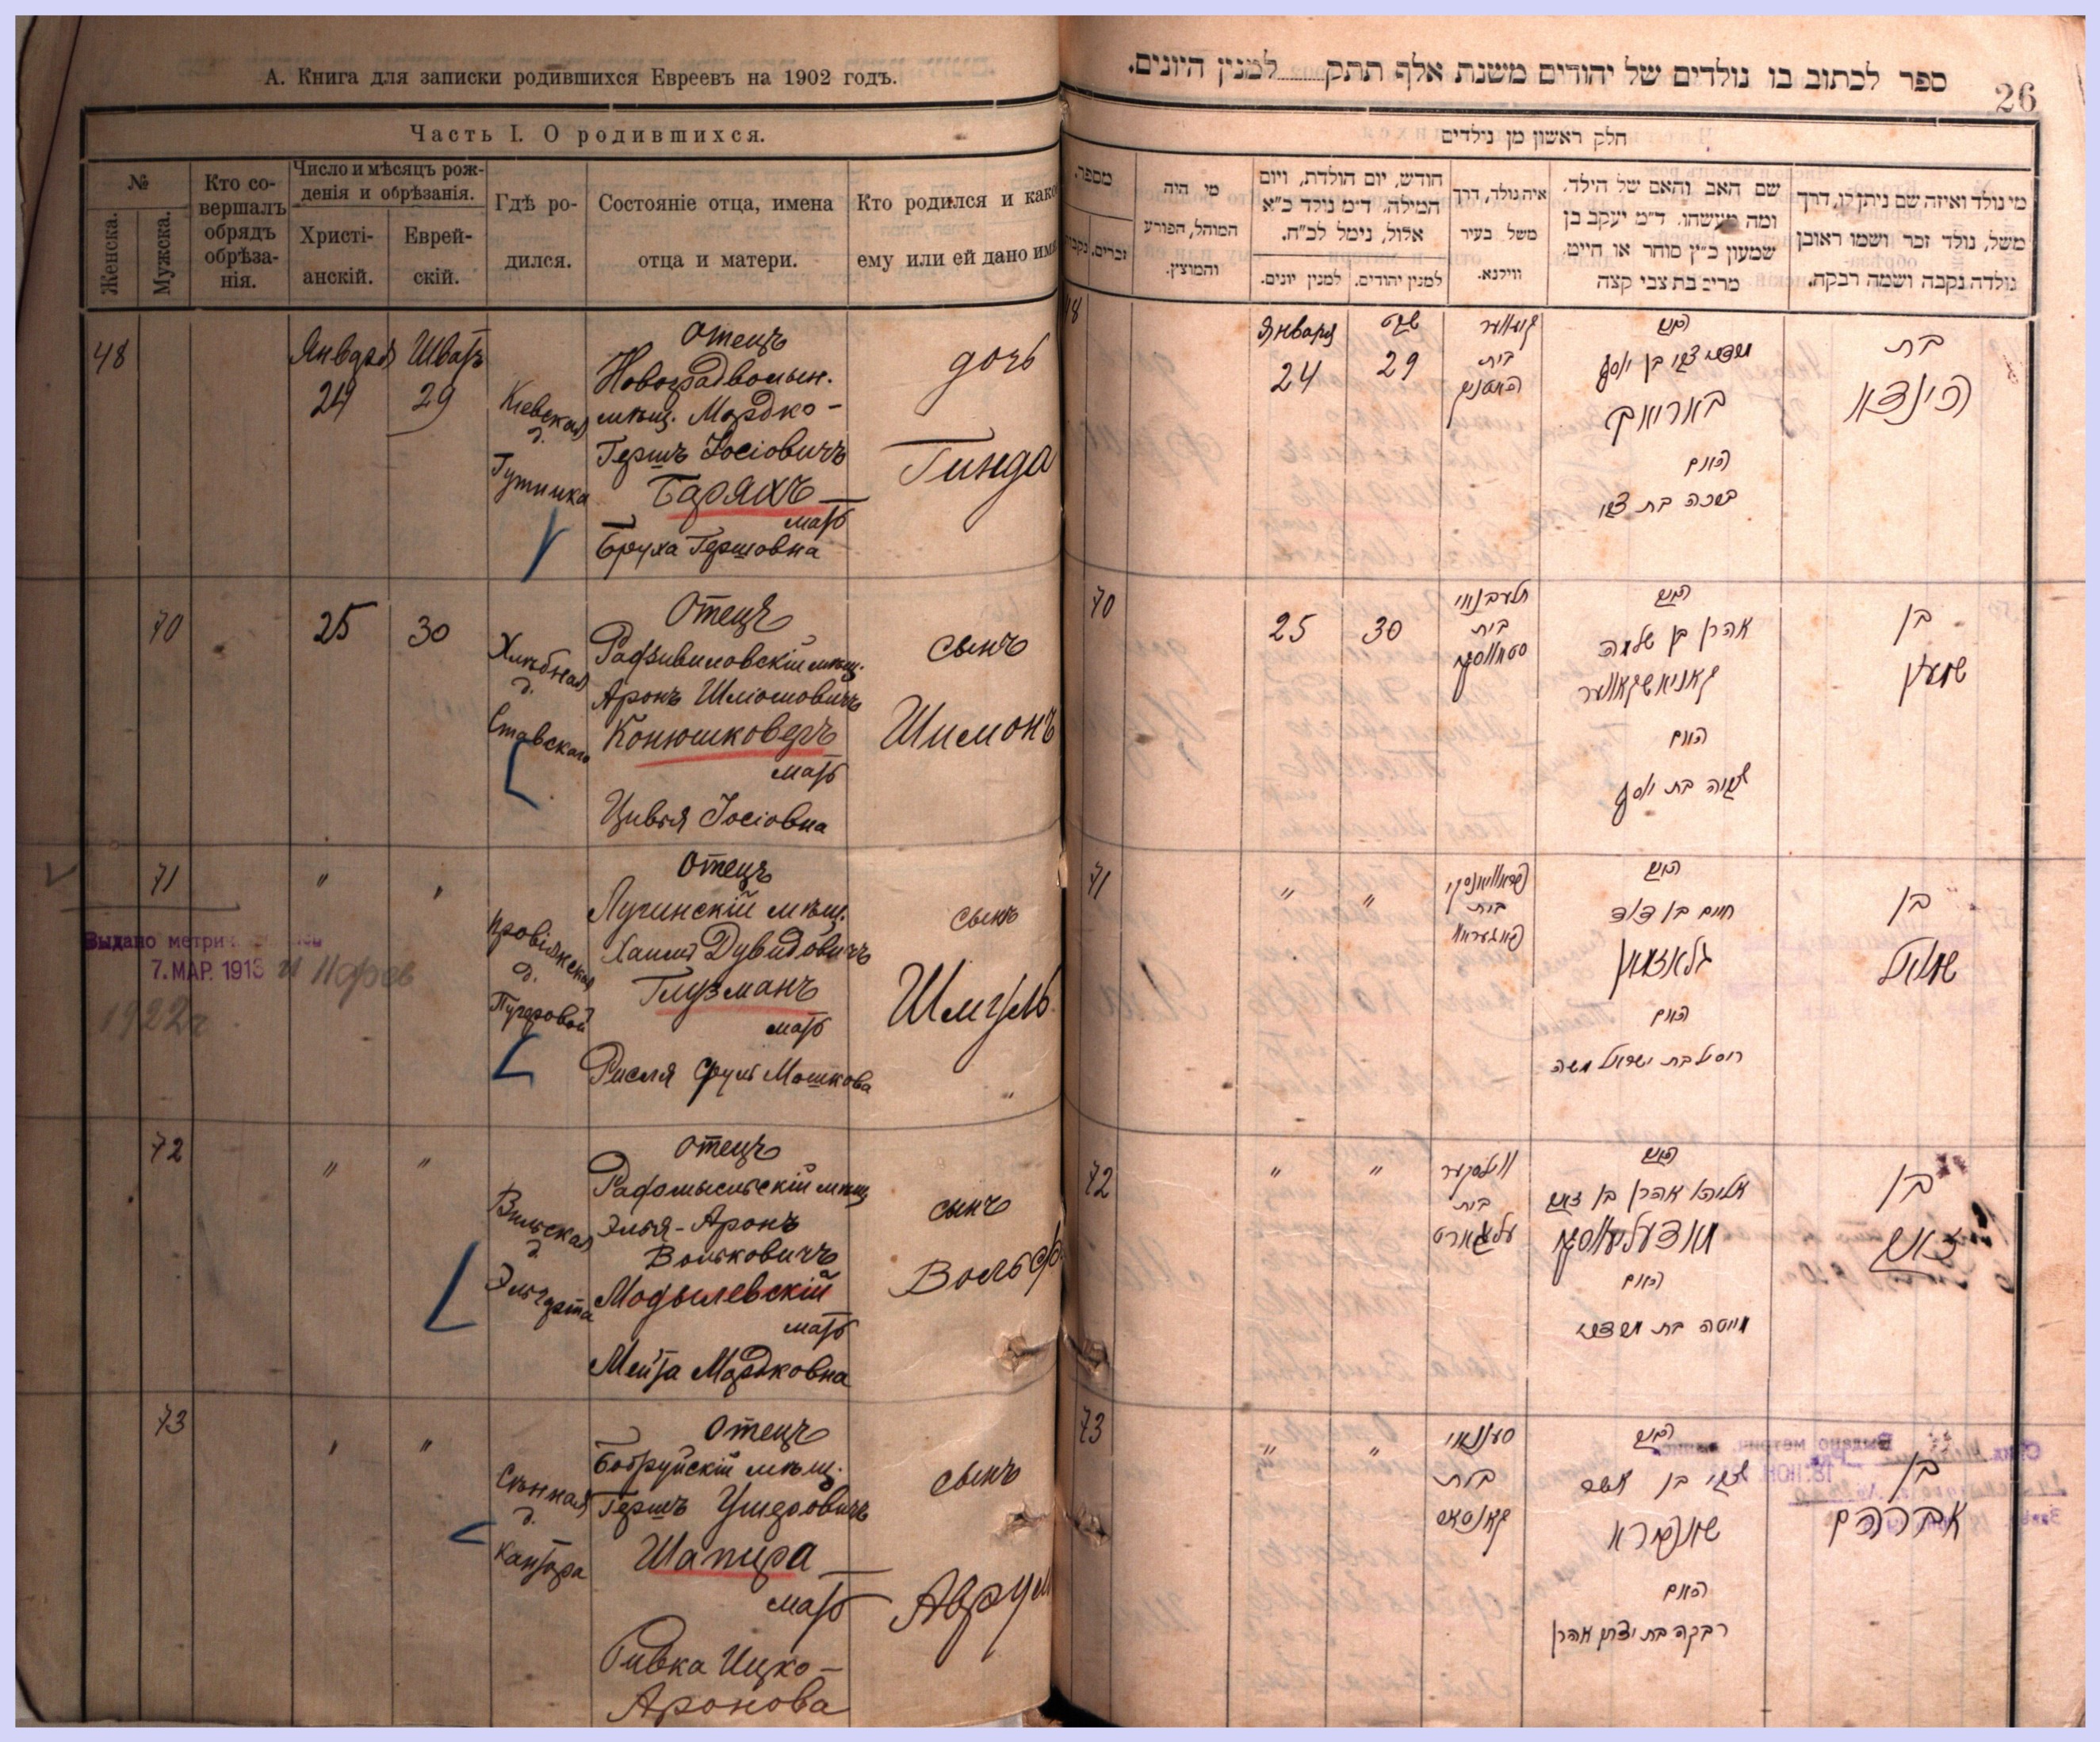 А. Книга для записки родившихся Евреевъ на 1902 годъ.
Часть I. О родившихся.
№
Женска.
Мужска.
Кто со-
вершалъ
обрядъ
обрѣза-
нія.
Число и мѣсяцъ рож-
денія и обрѣзанія.
Христі-
анскій.
Еврей-
скій.
Гдѣ ро-
дился.
Состояніе отца, имена
отца и матери.
Кто родился и како
ему или ей дано имя
48
Января
24
Шватъ
29
Кіевская
д.
Гутника
Отецъ
Новоградволын.
мѣщ. Мордко-
Гершъ Іосіовичъ
Баряхъ
мать
Бруха Гершовна
дочь
Гинда
70
25
30
Хлѣбная
д.
Ставскаго
Отецъ
Радзивиловскій мѣщ.
Аронъ Шліомовичъ
Конюшковеръ
мать
Цивья Іосіовна
сынъ
Шимонъ
71
"
"
Выдано метрич
7. МАР. 1913
1922г
д.
Отецъ
Лугинскій мѣщ.
Хаимъ Дувидовичъ
Глузманъ
мать
Рисля Сруль Мошкова
сынъ
Шмуль
"
72
"
"
Вильская
д.
Эльгарта
Отецъ
Радомысльскій мѣщ
Элья-Аронъ
Вольковичъ
Модылевскій
мать
Мейта Мордковна
сынъ
Вольф
73
"
"
Сѣнная
д.
Кантора
Отецъ
Бобруйскій мѣщ.
Гершъ Ушеровичъ
Шапира
мать
Ривка Ицко-
Аронова
сынъ
Аврум
26
ספר לכתוב בו נולדים של יהודים משנת אלף תתק למנין היונים.
חלק ראשון מן נילדים
מספר.
זכרים.
נקבות
מי היה
המוהל, הפורע
והמוצץ.
חודש, יום הולדת, ויום
המילה. ד"מ נולד כ"א
אלול, נימל לכ"ח.
למנין יונים.
למנין יהודים.
איה נולד, דרך
משל בעיר
ווילנא.
שם האב והאם של הילד,
ומה מעשהו. ד"מ יעקב בן
שמעון כ"ץ סוחר או חייט.
מרים בת צבי קצה
מי נולד ואיזה שם ניתן לו, דרך
משל, נולד זכר ושמו ראובן
נולדה נקבה ושמה רבקה.
48
Января
24
שבט
29
בית
האב
מרדכי צבי בן יוסף
באריאק
האם
ברכה בת צבי
בת
הינדא
70
25
30
בית
האב
אהרן בן שלמה
קאניושקאווער
האם
צביה בת יוסף
בן
שמעון
71
"
"
בית
האב
חיים בן דוד
גלאזמאן
האם
רוסיל בת ישראל משה
בן
שמואל
72
"
"
ווילסקער
בית
עלגארט
האב
אליהו אהרן בן זאב
מאדעליעווסקי
האם
מייטה בת מרדכי
בן
זאב
73
"
"
סעננאי
בית
קאנטאר
האב
צבי בן אשר
שאפירא
האם
רבקה בת יצחק אהרן
בן
אברהם
Выдано метрич. выпис.
18. ІЮН.